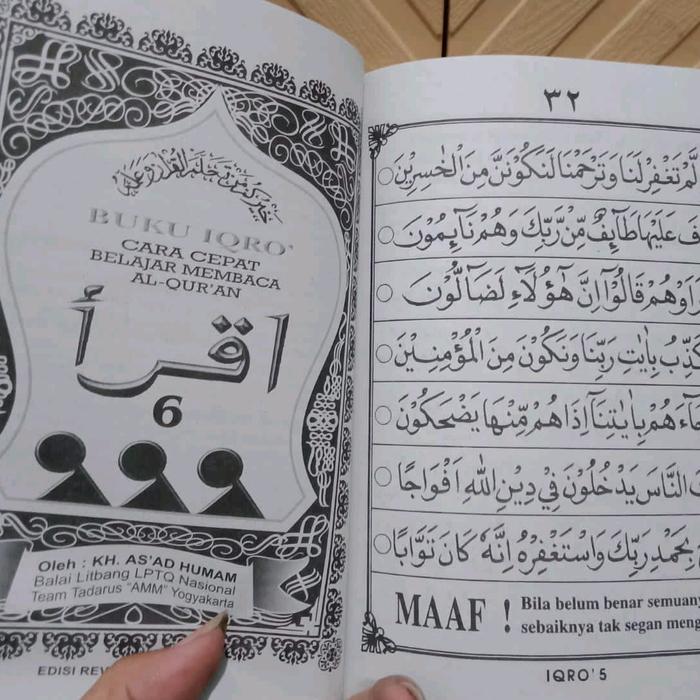 خيركم من تعلم القرآن وعلمه
BUKU IQRO'
CARA CEPAT
BELAJAR MEMBACA
AL-QUR'AN
اقرأ
6
Oleh : KH. AS'AD HUMAM
Balai Litbang LPTQ Nasional
Team Tadarus "AMM" Yogyakarta
EDISI REV
٣٢
لَّمْ تَغْفِرْ لَنَا وَتَرْحَمْنَا لَنَكُوْنَنَّ مِنَ الْخٰسِرِيْنَ
عَلَيْهَا طَآئِفٌ مِّنْ رَّبِّكَ وَهُمْ نَآئِمُوْنَ
وْهُمْ قَالُوْآ اِنَّ هٰٓؤُلَآءِ لَضَآلُّوْنَ
نُكَذِّبُ بِاٰيٰتِ رَبِّنَا وَنَكُوْنَ مِنَ الْمُؤْمِنِيْنَ
جَآءَهُمْ بِاٰيٰتِنَآ اِذَا هُمْ مِّنْهَا يَضْحَكُوْنَ
النَّاسَ يَدْخُلُوْنَ فِيْ دِيْنِ اللّٰهِ اَفْوَاجًا
بِحَمْدِ رَبِّكَ وَاسْتَغْفِرْهُ اِنَّهٗ كَانَ تَوَّابًا
MAAF ! Bila belum benar semuany
sebaiknya tak segan meng
IQRO' 5